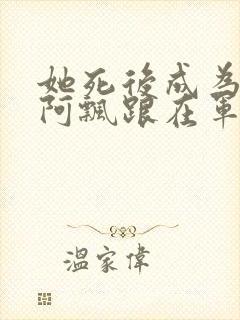 她死後成為
阿飄跟在軍
溫家偉